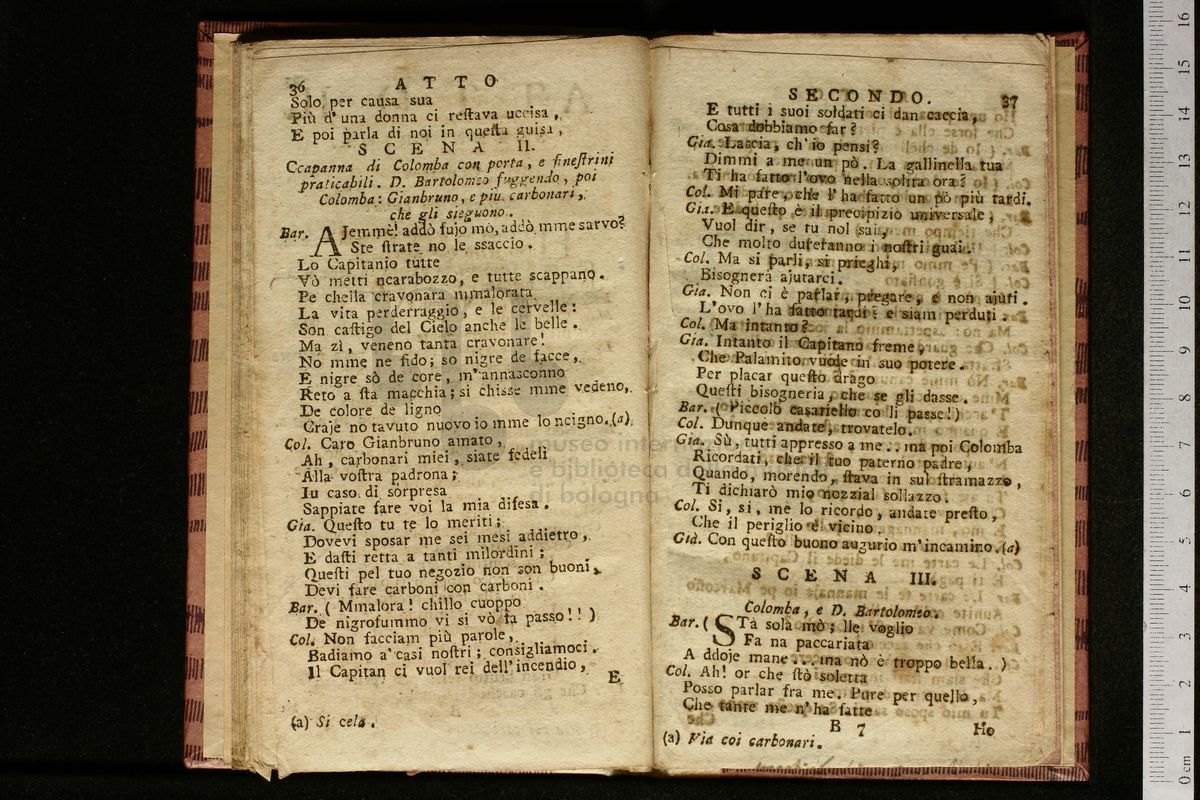 36 ATTO
Solo, per causa sua
Più d'una donna ci reſtava ucciſa,
E poi parla di noi in queſta guiſa,
SCENA II.
Ccapanna di Colomba con porta, e fineſtrini
praticabili. D. Bartolomeo fuggendo, poi
Colomba: Gianbruno, e più carbonari,
che gli sieguono.
Bar. AJemmè! addò fujo mò, addò mme sarvo?
Ste ſtrate no le ssaccio.
Lo Capitanio tutte
Vò metti ncarabozzo, e tutte scappano.
Pe chella cravonara mmalorata
La vita perderraggio, e le cervelle:
Son caſtigo del Cielo anche le belle.
Ma zì, veneno tanta cravonare!
No mme ne fido; so nigre de facce,
E nigre sò de core, m'annasconno
Reto a ſta macchia; si chisse mme vedeno,
De colore de ligno
Craje no tavuto nuovo io mme lo ncigno.(a)
Col. Caro Gianbruno amato,
Ah, carbonari miei, siate fedeli
Alla voſtra padrona;
In caso di sorpresa
Sappiate fare voi la mia difesa.
Gia. Queſto tu te lo meriti;
Dovevi sposar me sei mesi addietro,
E daſti retta a tanti milordini;
Queſti pel tuo negozio non son buoni,
Devi fare carboni con carboni.
Bar. ( Mmalora! chillo cuoppo
De nigrofummo vi si vò fa passo!! )
Col. Non facciam più parole,
Badiamo a' casi noſtri; consigliamoci.
Il Capitan ci vuol rei dell'incendio,
E
(a) Si cela.
SECONDO. 37
E tutti i suoi soldati ci dan caccia,
Cosa dobbiamo far?
Gia. Lascia, ch'io pensi?
Dimmi a me un pò. La gallinella tua
Ti ha fatto l'ovo nella solita ora?
Col. Mi pare, che l'ha fatto un pò più tardi.
Gia. E queſto è il precipizio universale,
Vuol dir, se tu nol sai,
Che molto dureranno i noſtri guai.
Col. Ma si parli, si prieghi,
Bisognerà ajutarci.
Gia. Non ci è parlar, pregare, e non ajuti.
L'ovo l'ha fatto tardi: e siam perduti.
Col. Ma intanto?
Gia. Intanto il Capitano freme,
Che Palamito vuole in suo potere.
Per placar queſto drago
Queſti bisogneria, che se gli dasse.
Bar. ( Piccolo casariello co li passe!)
Col. Dunque andate, trovatelo.
Gia. Sù, tutti appresso a me... ma poi Colomba
Ricordati, che il tuo paterno padre,
Quando, morendo, ſtava in sul ſtramazzo,
Ti dichiarò mio nozzial sollazzo.
Col. Si, si, me lo ricordo, andate preſto,
Che il periglio è vicino.
Gia. Con queſto buono augurio m'incamino.(a)
SCENA III.
Colomba, e D. Bartolomeo.
Bar. ( STa sola mò; lle voglio
Fa na paccariata
A ddoje mane... ma nò è troppo bella. )
Col. Ah! or che ſtò soletta
Posso parlar fra me. Pure per quello,
Che tante me n'ha fatte
B 7 Ho
(a) Via coi carbonari.
museo
e biblioteca
di bologna